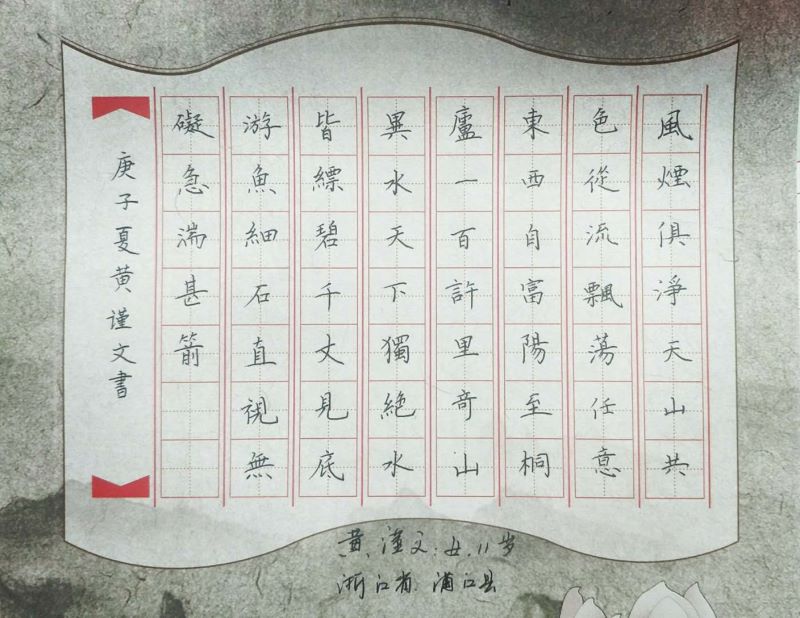 風煙俱淨天山共
色從流飄蕩任意
東西自富陽至桐
廬一百許里奇山
異水天下獨絕水
皆縹碧千丈見底
游魚細石直視無
礙急湍甚箭
庚子夏黄谨文書
黄谨文:女.11岁
浙江省.浦江县